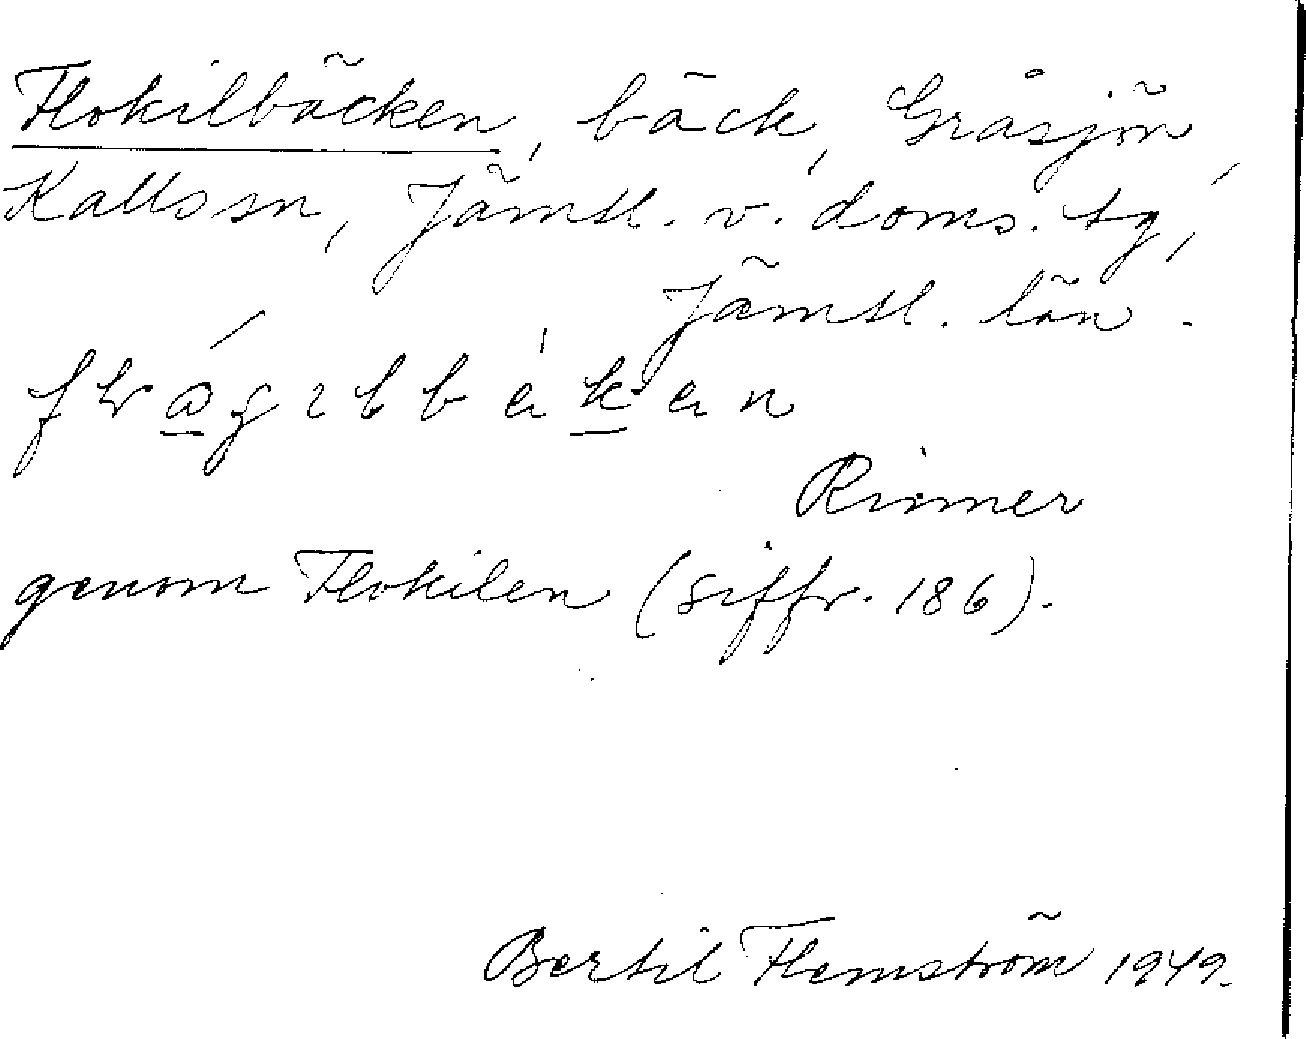 Flokilbäcken, bäck, Gråsjön,
Kalls sn, Jämtl. v. doms. tg,
Jämtl. län.
Rinner
genom Flokilen (siffr. 186).
Bertil Flemström 1949.